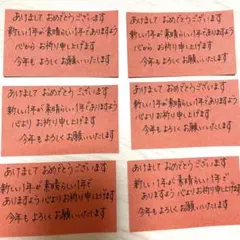 あけまして おめでとうございます
新しい1年が素晴らしい1年でありますよう
心からお祈り申し上げます
今年もよろしくお願いいたします
あけまして おめでとうございます
新しい1年が素晴らしい1年でありますよう
心よりお祈り申し上げます
今年もよろしくお願いいたします
あけまして おめでとうございます
新しい1年が素晴らしい1年でありますよう
心よりお祈り申し上げます
今年もよろしくお願いいたします
あけまして おめでとうございます
新しい1年が素晴らしい1年でありますよう
心よりお祈り申し上げます
今年もよろしくお願いいたします
あけまして おめでとうございます
新しい1年が 素晴らしい1年で
ありますよう心よりお祈り申し上げます
今年もよろしくお願いいたします
あけまして おめでとうございます
新しい1年が素晴らしい1年で
ありますよう心よりお祈り申し上げます
今年もよろしくお願いいたします